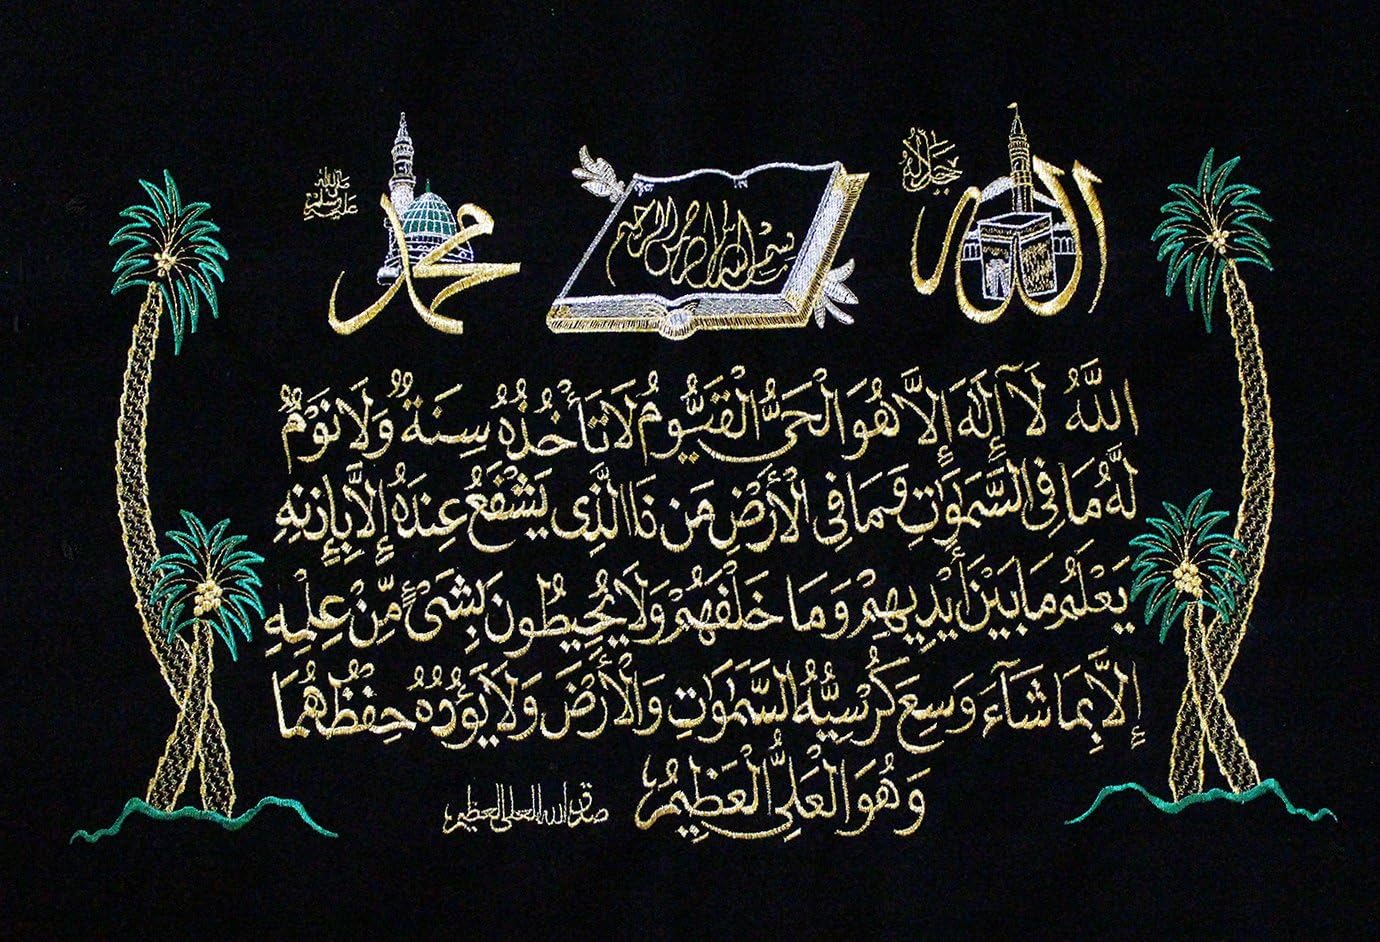 الله جلاله
بسم الله الرحمن الرحيم
محمد صلى الله عليه وسلم
اللَّهُ لَآ إِلَٰهَ إِلَّا هُوَ الْحَيُّ الْقَيُّومُ لَا تَأْخُذُهُ سِنَةٌ وَلَا نَوْمٌ
لَّهُ مَا فِي السَّمَٰوَٰتِ وَمَا فِي الْأَرْضِ مَن ذَا الَّذِي يَشْفَعُ عِندَهُ إِلَّا بِإِذْنِهِ
يَعْلَمُ مَا بَيْنَ أَيْدِيهِمْ وَمَا خَلْفَهُمْ وَلَا يُحِيطُونَ بِشَيْءٍ مِّنْ عِلْمِهِ
إِلَّا بِمَا شَآءَ وَسِعَ كُرْسِيُّهُ السَّمَٰوَٰتِ وَالْأَرْضَ وَلَا يَؤُدُهُ حِفْظُهُمَا
وَهُوَ الْعَلِيُّ الْعَظِيمُ
صدق الله العلي العظيم